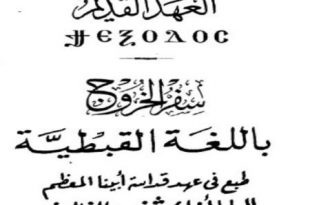 العهد القديم
ϮⲈⲜⲞⲆⲞⲤ
سِفْرُ الخُرُوج
باللغة القبطيَّة
طبع فى عهد قداسة أبينا المعظم